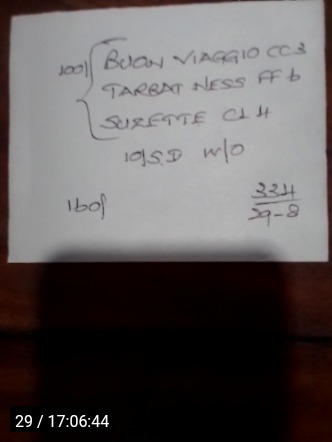 100/ { BUON VIAGGIO CC3
TARBAT NESS FF6
SUZETTE CL 4
10/S.D W/O
160/
334
29-8
29 / 17:06:44